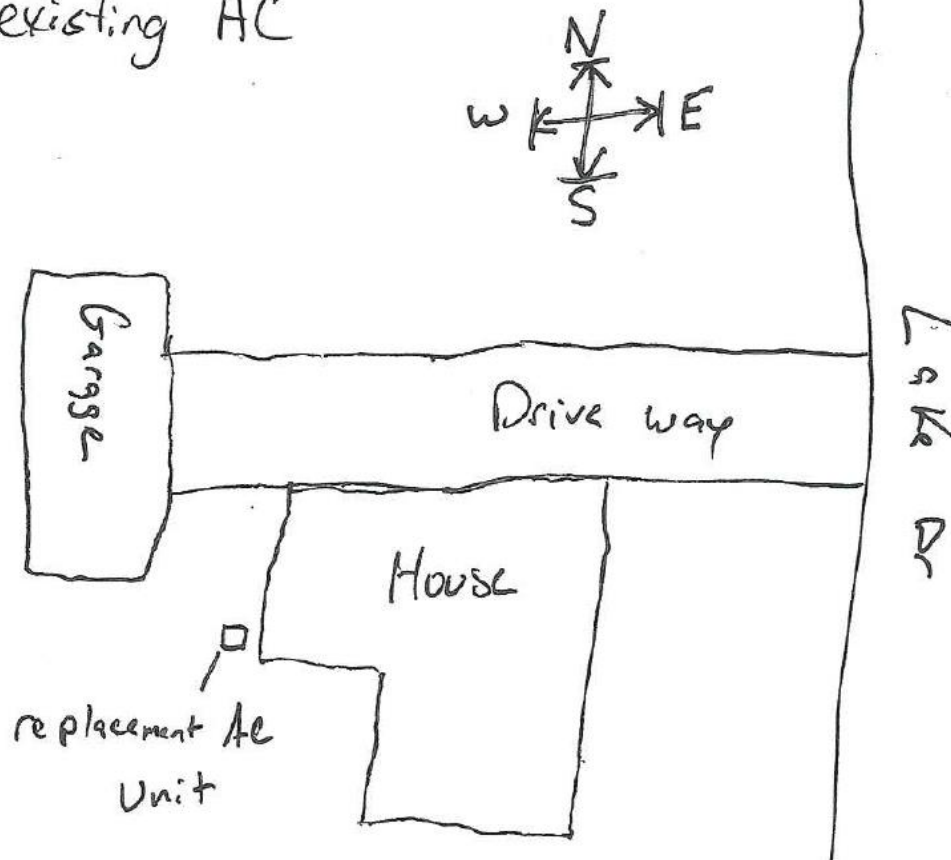 existing AC
N
W E
S
Garage
Drive way
Lake Dr
House
replacement AC
Unit